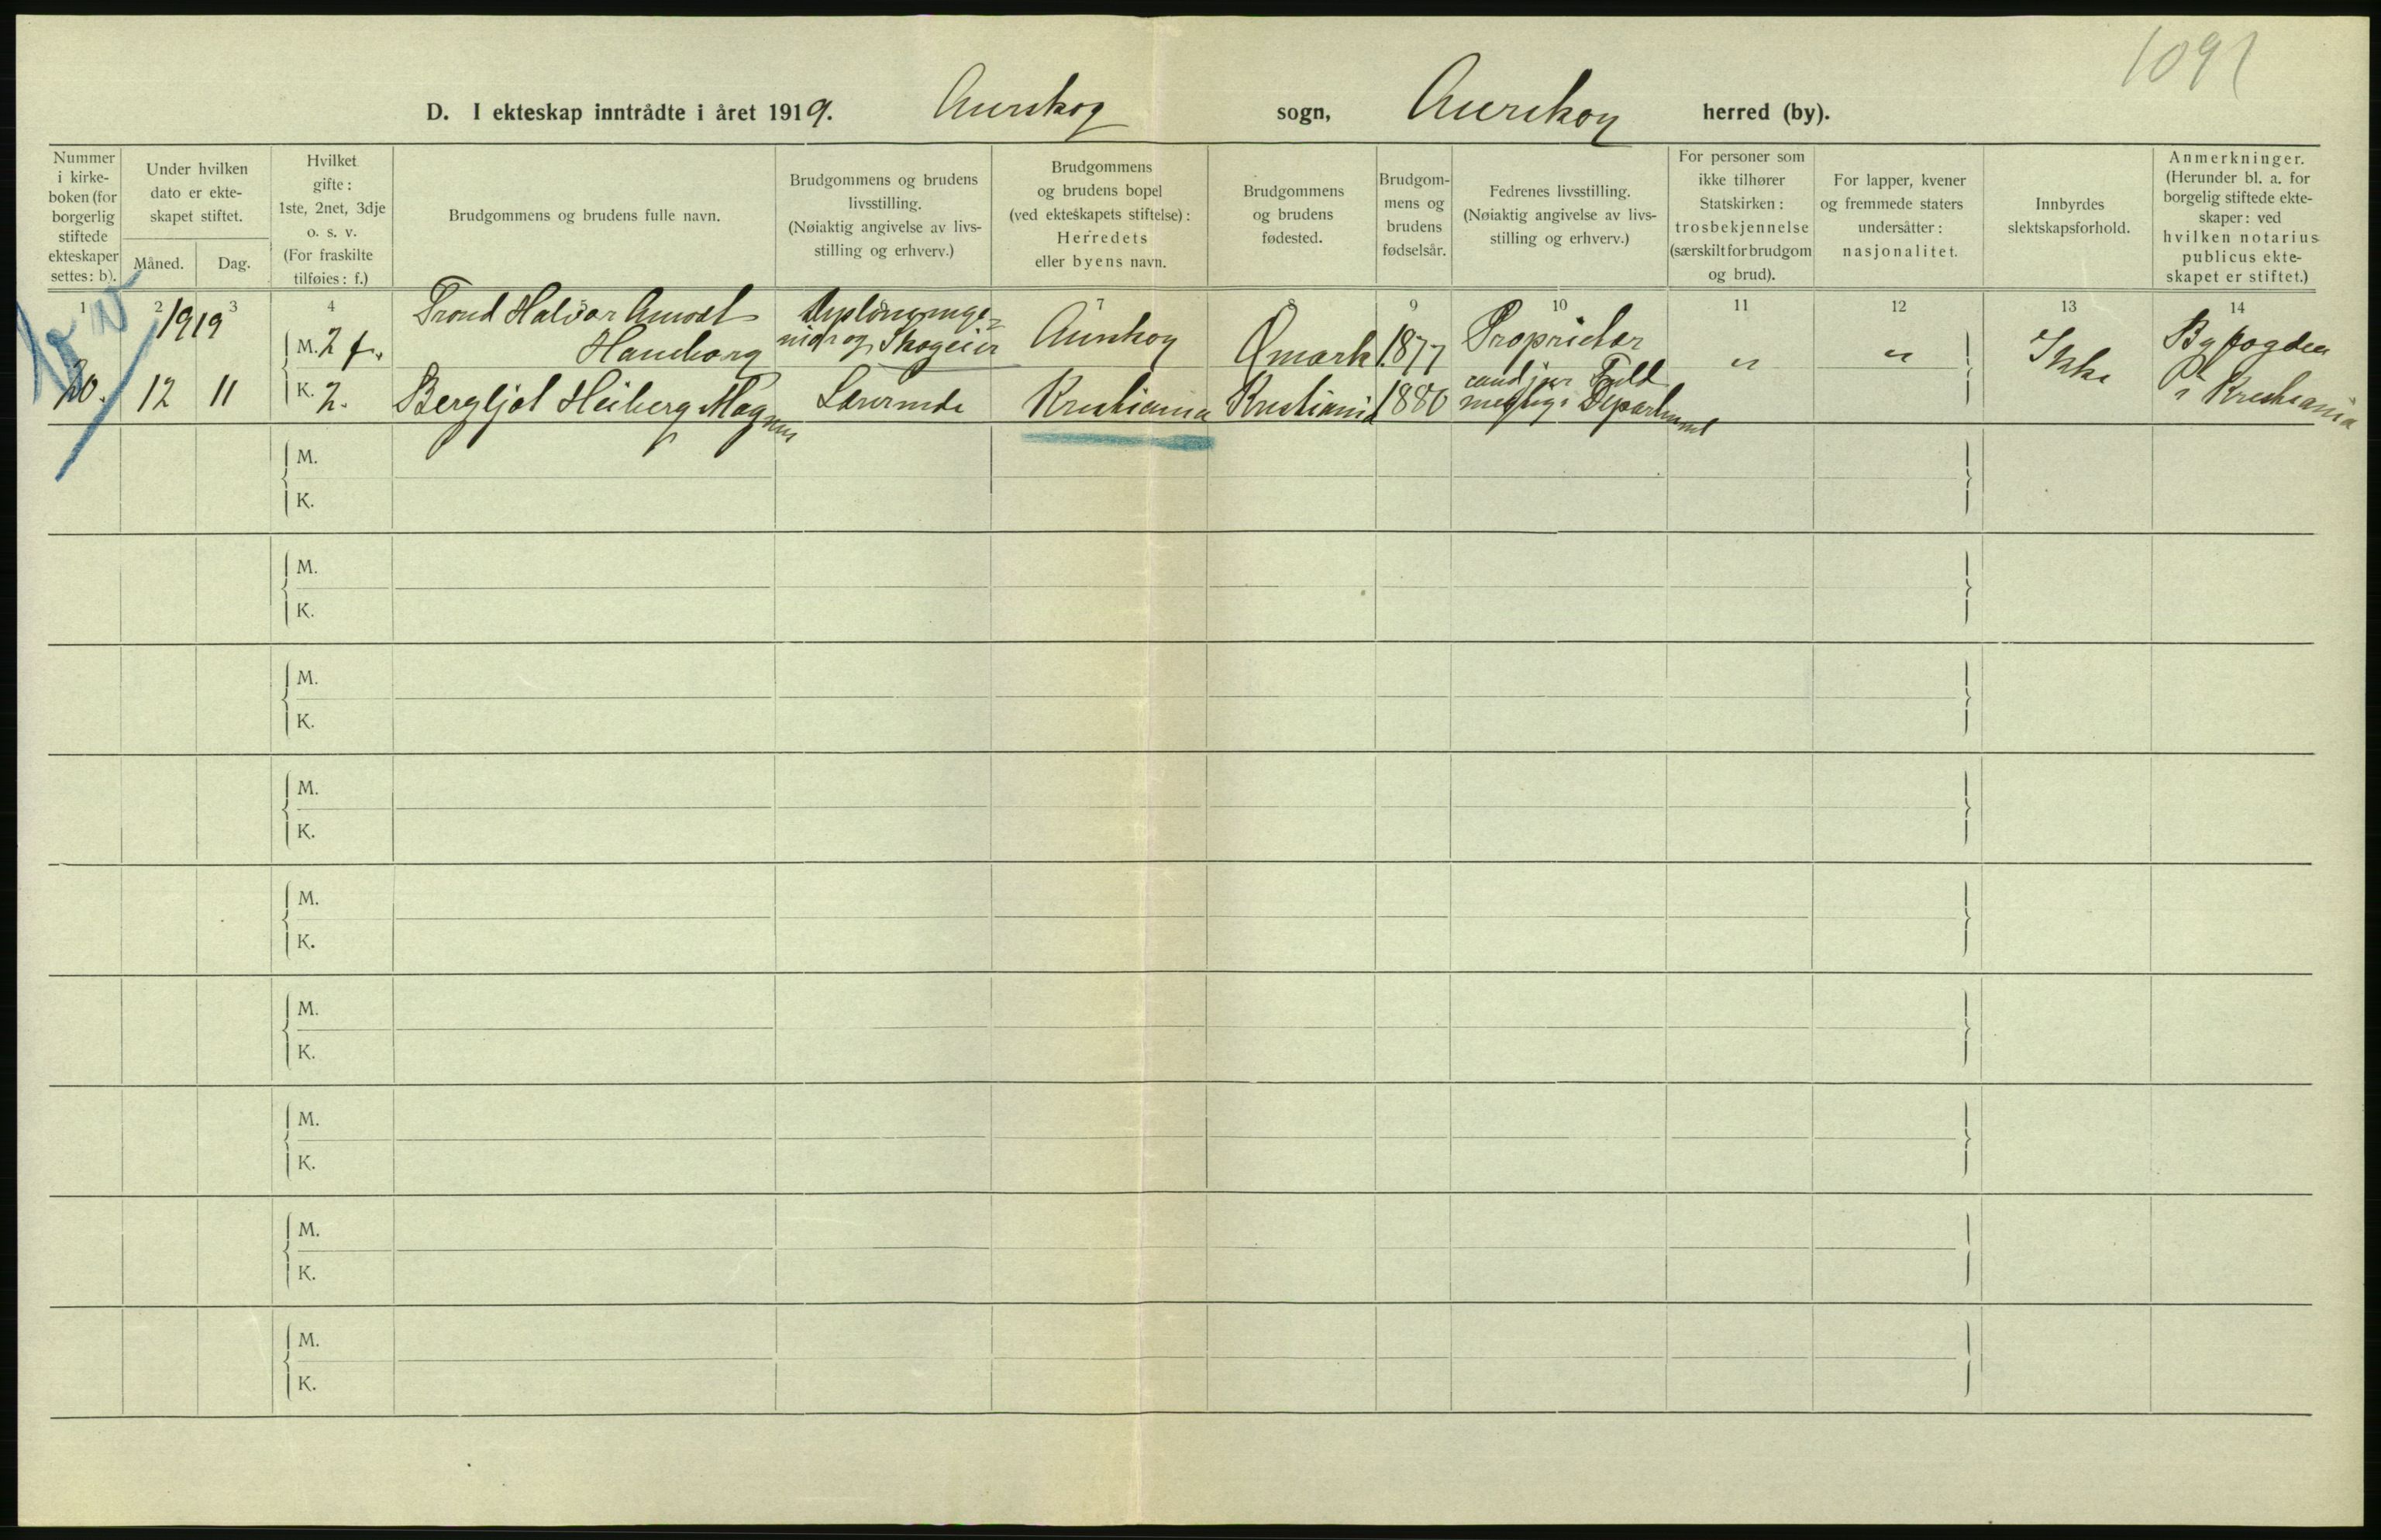 1091
D. I ekteskap inntrådte i året 1919. Aurskog sogn, Aurskog herred (by).
Nummer
i kirke-
boken (for
borgerlig
stiftede
ekteskaper
settes: b).
Under hvilken
dato er ekte-
skapet stiftet.
Måned.
Dag.
Hvilket
gifte:
1ste, 2net, 3dje
o. s. v.
(For fraskilte
tilføies: f.)
Brudgommens og brudens fulle navn.
Brudgommens og brudens
livsstilling.
(Nøiaktig angivelse av livs-
stilling og erhverv.)
Brudgommens
og brudens bopel
(ved ekteskapets stiftelse):
Herredets
eller byens navn.
Brudgommens
og brudens
fødested.
Brudgom-
mens og
brudens
fødselsår.
Fedrenes livsstilling.
(Nøiaktig angivelse av livs-
stilling og erhverv.)
For personer som
ikke tilhører
Statskirken:
trosbekjennelse
(særskilt for brudgom
og brud).
For lapper, kvener
og fremmede staters
undersåtter:
nasjonalitet.
Innbyrdes
slektskapsforhold.
Anmerkninger.
(Herunder bl. a. for
borgelig stiftede ekte-
skaper: ved
hvilken notarius
publicus ekte-
skapet er stiftet.)
1 2 3 4 7 8 9 10 11 12 13 14
1919
20. 12 11
M. 2 f.
Trond Halvor Haneborg
Skogeier
Aurskog
Ømark
1877
Proprietær
" "
Ikke
Byfogden
i Kristiania
K. 2.
Bergljot Heiberg Magnus
Lærerinde
Kristiania
Kristiania
1880
cand jur Fuld
mægtig i Departement
M.
K.
M.
K.
M.
K.
M.
K.
M.
K.
M.
K.
M.
K.
M.
K.
M.
K.